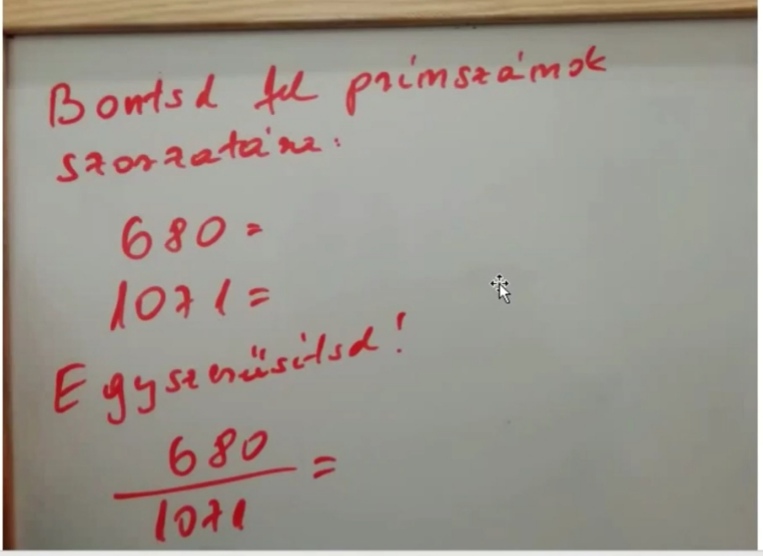 Bontsd fel prímszámok
szorzatára:
680=
1071=
Egyszerűsítsd!
680
1071
=